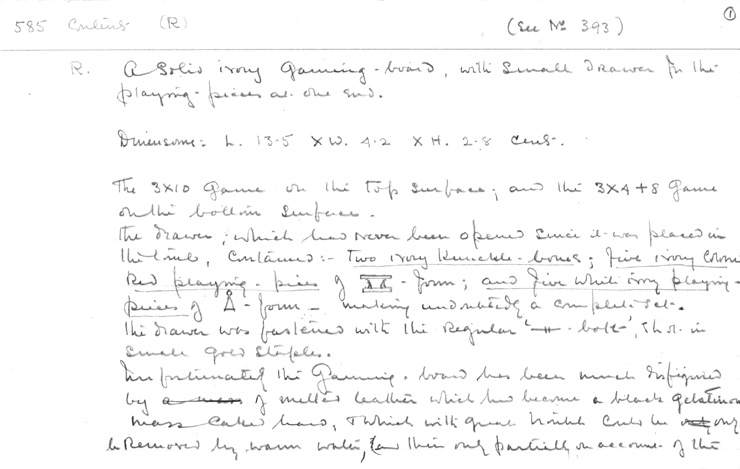 ①
585 Contins (R) (See No 393)
R. A solid ivory Gaming-board, with small drawer for the
playing-pieces at one end.
Dimensions: L. 13.5 × W. 4.2 × H. 2.8 cent.
The 3×10 Game on the top surface; and the 3×4+8 Game
on the bottom surface.
The drawer, which had never been opened since it was placed in
the tomb, contained:- Two ivory knuckle-bones; five ivory
Red playing-pieces of -form; and five white ivory playing-
pieces of -form - making undoubtedly a complete set.
The drawer was fastened with the Regular '-bolt', shot in
small gold staples.
Unfortunately the Gaming-board has been much disfigured
by of melted leather which had become a black gelatinous
mass caked hard, which with great trouble could be only
be Removed by warm water, & then only partially on account of the